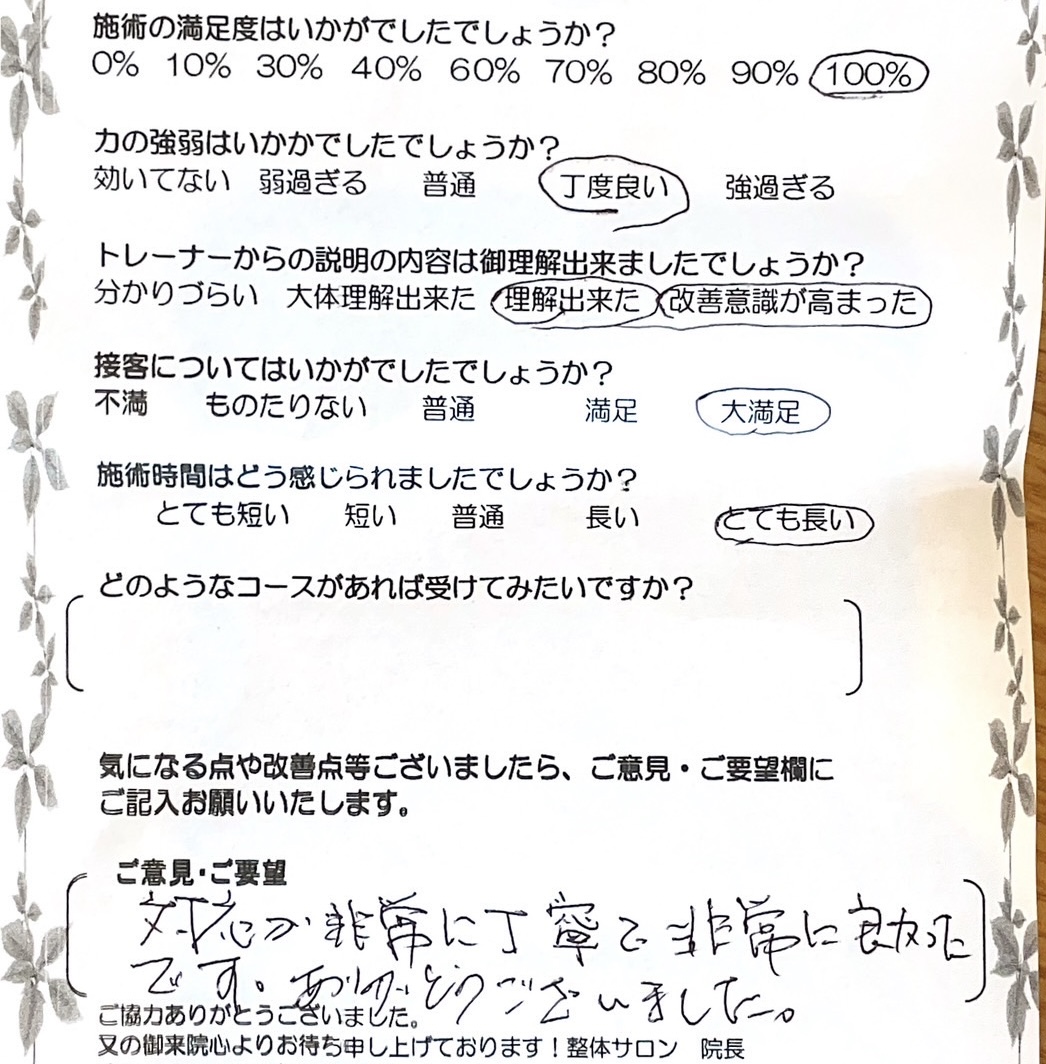 施術の満足度はいかがでしたでしょうか？
0% 10% 30% 40% 60% 70% 80% 90% 100%
力の強弱はいかかでしたでしょうか？
効いてない 弱過ぎる 普通 丁度良い 強過ぎる
トレーナーからの説明の内容は御理解出来ましたでしょうか？
分かりづらい 大体理解出来た 理解出来た 改善意識が高まった
接客についてはいかがでしたでしょうか？
不満 ものたりない 普通 満足 大満足
施術時間はどう感じられましたでしょうか？
とても短い 短い 普通 長い とても長い
どのようなコースがあれば受けてみたいですか？
気になる点や改善点等ございましたら、ご意見・ご要望欄に
ご記入お願いいたします。
ご意見・ご要望
対応が非常に丁寧で非常に良かった
です。ありがとうございました。
ご協力ありがとうございました。
又の御来院心よりお待ち申し上げております！整体サロン 院長